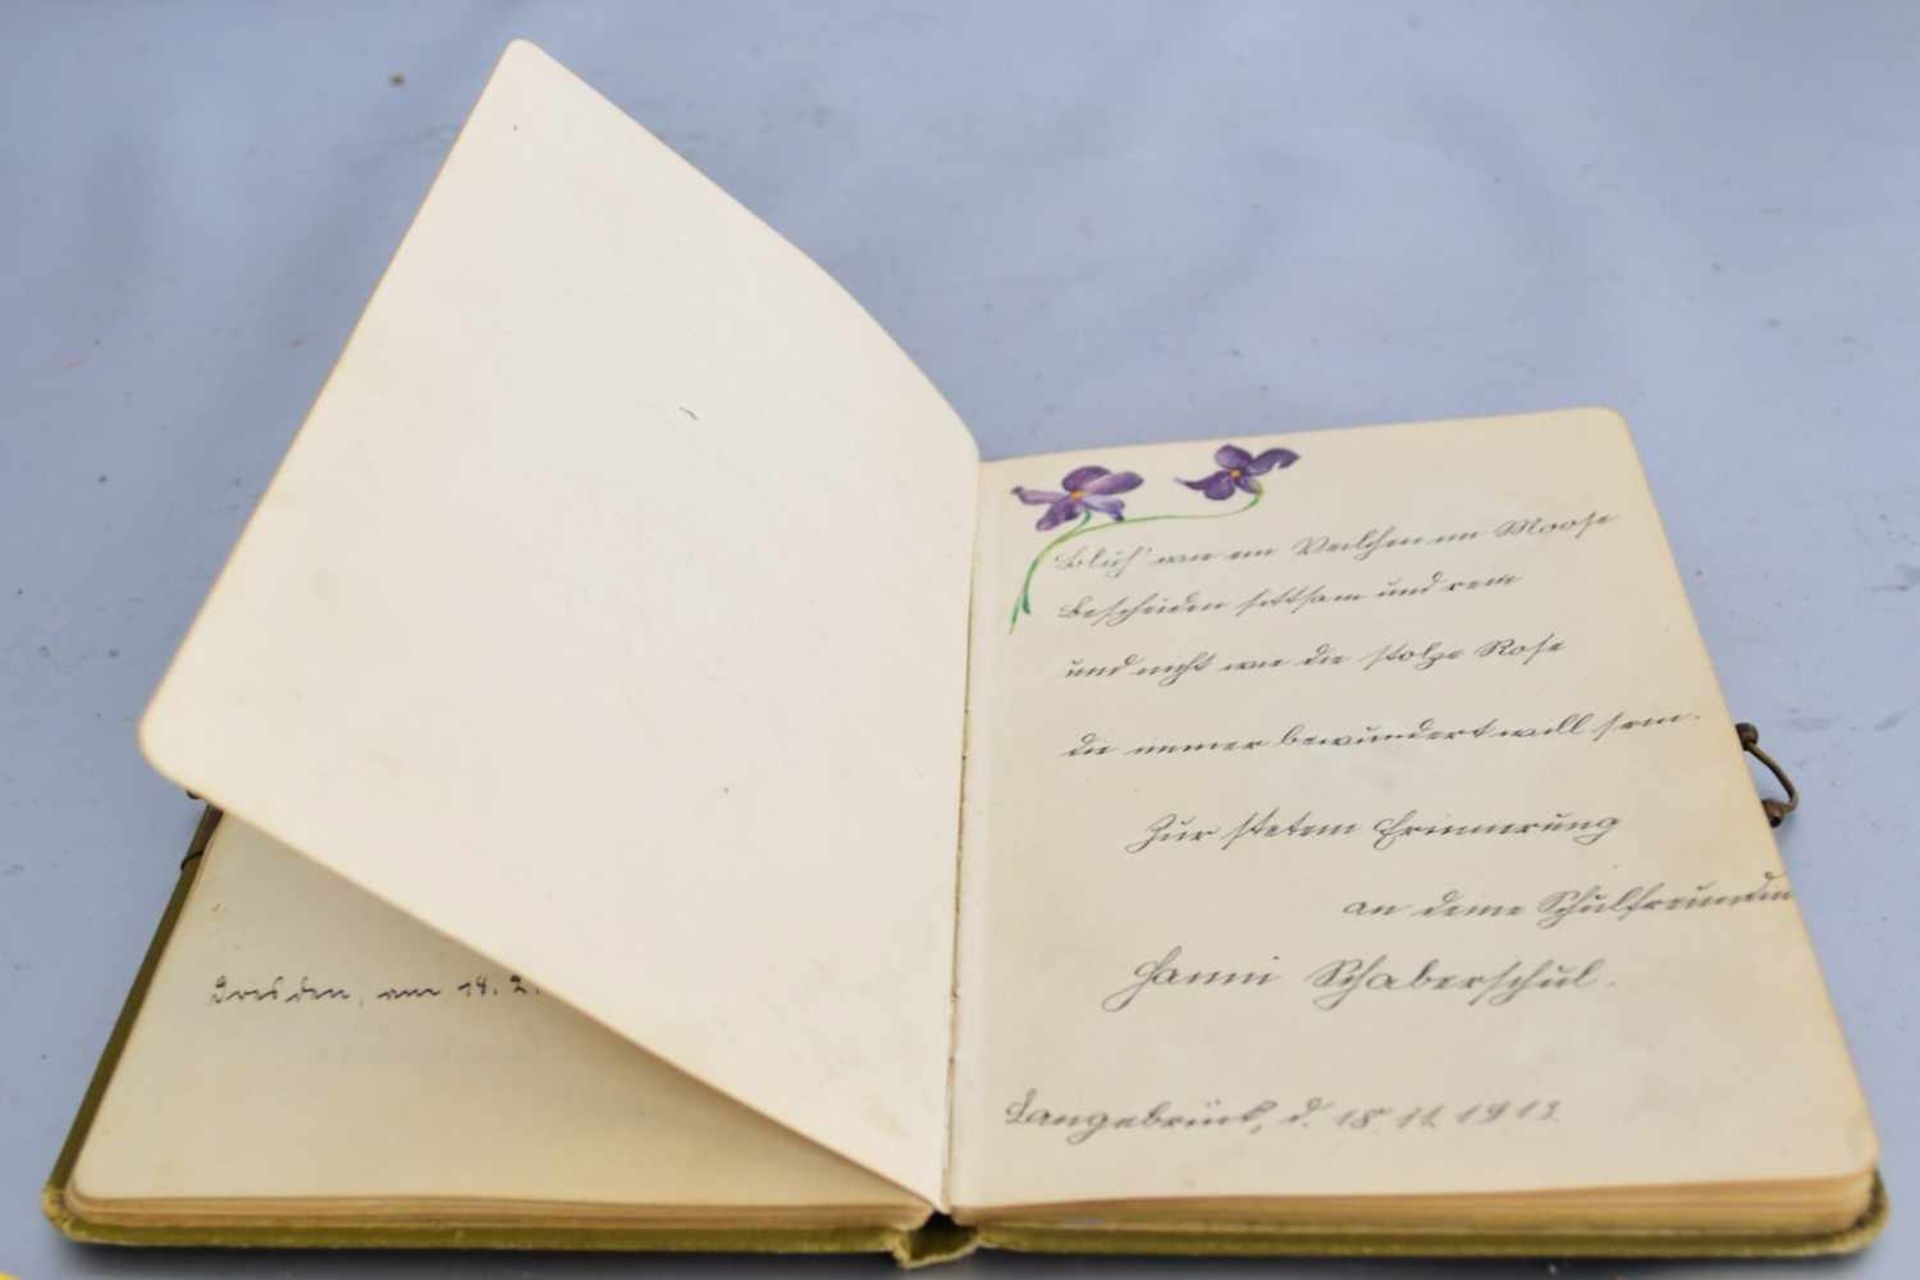 Dresden, am 18. 2.
Blüh' wie ein Veilchen im Moose
Bescheiden sittsam und rein
und nicht wie die stolze Rose
die immer bewundert will sein.
Zur steten Erinnerung
an deine Schulfreundin
Hanni Schaberschul.
Langebrück, d. 18. 11. 1913